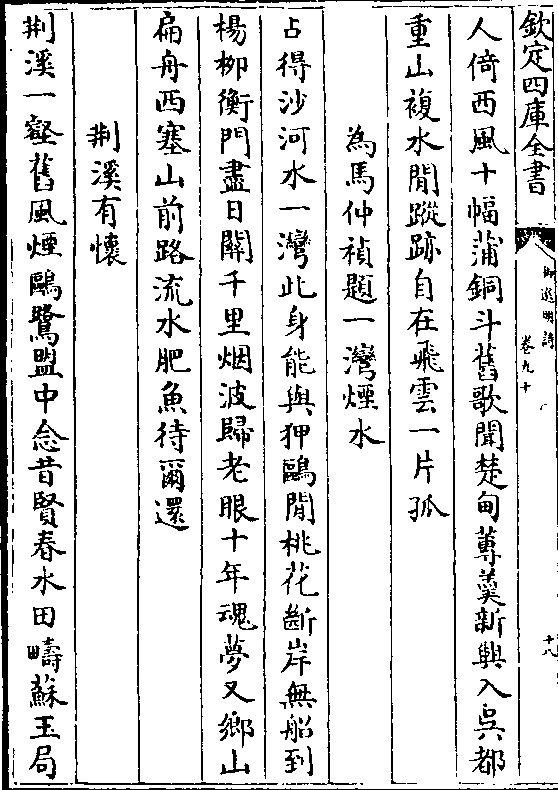 欽定四庫全書
御選明詩
卷九十
十八
人倚西風十幅蒲銅斗舊歌聞楚甸蓴羮新興入吳都
重山複水閒蹤跡自在飛雲一片孤
為馬仲禎題一灣煙水
占得沙河水一灣此身能與狎鷗閒桃花斷岸無船到
楊柳衡門盡日關千里烟波歸老眼十年魂夢又鄉山
扁舟西塞山前路流水肥魚待爾還
荆溪有懷
荆溪一壑舊風煙鷗鷺盟中念昔賢春水田疇蘇玉局